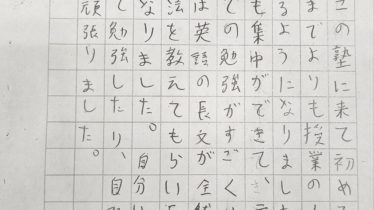 この塾に来て初め
までよりも授業の
るようになりまし
も集中ができて、
ても勉強がすごく
は英語の長文が全
法を教えてもらい
なりました。自分
て勉強したり、自
頑張りました。